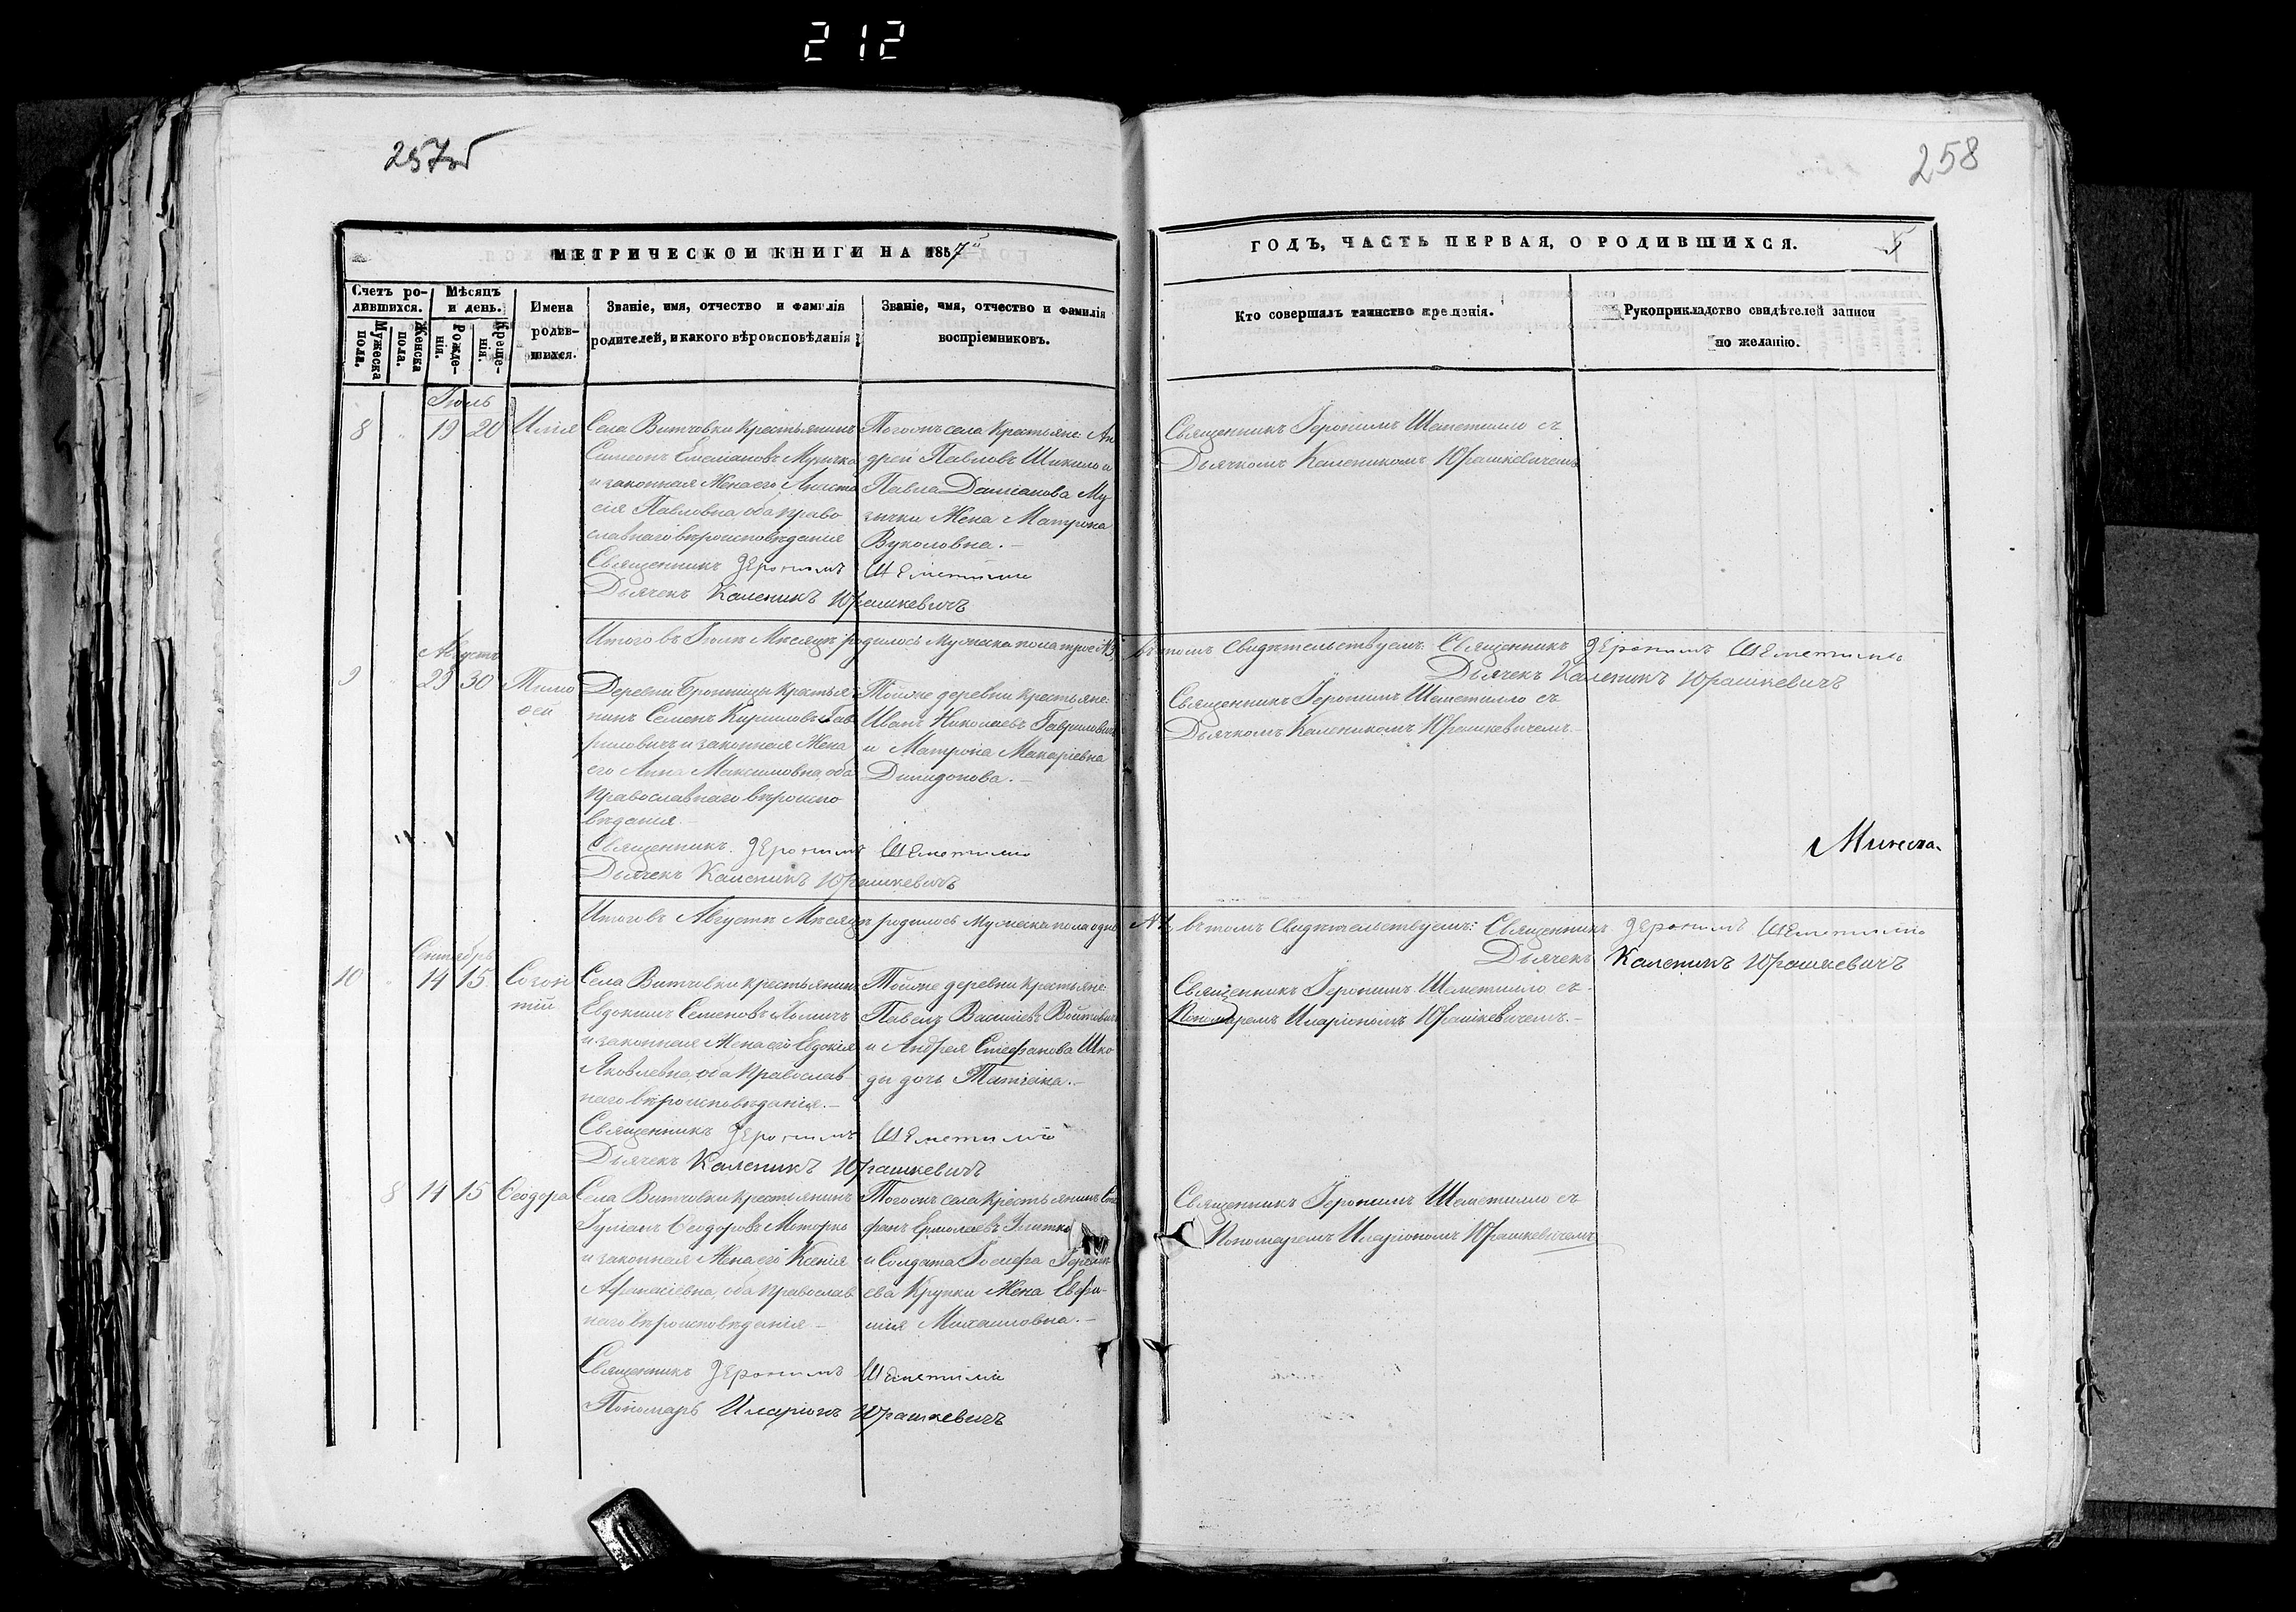 212
257об
258
МЕТРИЧЕСКОЙ КНИГИ НА 1857й
ГОДЪ, ЧАСТЬ ПЕРВАЯ, О РОДИВШИХСЯ.
Счетъ родившихся.
Мужеска пола.
Женска пола.
Мѣсяцъ и день.
Рожденія.
Крещенія.
Имена родившихся.
Званіе, имя, отчество и фамилія
родителей, и какого вѣроисповѣданія
Званіе, имя, отчество и фамилія
воспріемниковъ.
Кто совершалъ таинство крещенія.
Рукоприкладство свидѣтелей записи
по желанію.
Іюль
8 19 20 Илія
Села Витчовки крестьянинъ
Симеонъ Емеліановъ Музычка
и законная Жена его Анаста
сія Павловна, оба право
славнаго вѣроисповѣданія
Тогожъ села крестьяне: Ан
дрей Павловъ Шикило и
Павла Даміанова Му
зычки Жена Матрона
Вуколовна.
Священникъ Іеронимъ Шеметилло
Дьячекъ Каленикъ Юрашкевичъ
Священникъ Іеронимъ Шеметилло съ
Дьячкомъ Калеником Юрашкевичемъ
Итого въ Іюлѣ Мѣсяцѣ родилось Мужеска пола трое №3, въ томъ свидѣтельствуемъ: Священникъ Іеронимъ Шеметилло
Дьячекъ Каленикъ Юрашкевичъ
Августъ
9 29 30 Тимо
ѳей
Деревни Бронницы крестья
нинъ Семенъ Кириловъ Гав
риловичъ и законная Жена
его Анна Максимовна, оба
православнаго вѣроиспо
вѣданія.
Тойже деревни крестьяне:
Иванъ Николаевъ Гавриловичъ
и Матрона Макаріевна
Священникъ Іеронимъ Шеметилло
Дьячекъ Каленикъ Юрашкевичъ
Священникъ Іеронимъ Шеметилло съ
Дьячкомъ Калеником Юрашкевичемъ
Итого въ Августѣ Мѣсяцѣ родилось Мужеска пола одинъ №1, въ томъ свидѣтельствуемъ: Священникъ Іеронимъ Шеметилло
Дьячекъ Каленикъ Юрашкевичъ
Сентябрь
10 14 15
Села Витчовки крестьянинъ
Евдокимъ Семеновъ Холмичъ
и законная Жена его Евдокія
Яковлевна, оба православ
наго вѣроисповѣданія.
Тойже деревни крестьяне:
Павелъ Василіевъ Войтовичъ
и Андрея Стефанова Шко
ды дочь Татіана.
Священникъ Іеронимъ Шеметилло
Дьячекъ Каленикъ Юрашкевичъ
Священникъ Іеронимъ Шеметилло съ
Пономаремъ Иларіономъ Юрашкевичемъ.
8 14 15 Ѳеодора
Села Витчовки крестьянинъ
Іуліанъ Ѳеодоровъ Моторко
и законная Жена его Ксенія
Афанасіевна, оба православ
наго вѣроисповѣданія
Тогожъ села крестьянинъ Сте
фанъ Ермолаевъ
и Солдата Іосифа
ева Крупки Жена Евфи-
мія Михаиловна.
Священникъ Іеронимъ Шеметилло
Пономарь Иларіонъ Юрашкевичъ
Священникъ Іеронимъ Шеметилло съ
Пономаремъ Иларіономъ Юрашкевичемъ